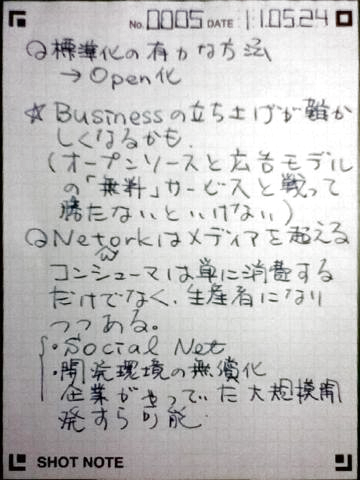 No. 0005 DATE 11.05.24
○標準化の有力な方法
→ Open化
☆Businessの立ち上げが難か
しくなるかも.
(オープンソースと広告モデル
の「無料」サービスと戦って
勝たないといけない)
○Netorkはメディアを超える
w
コンシューマは単に消費する
だけでなく、生産者になり
つつある。
・Social Net
・開発環境の無償化
企業がやっていた大規模開
発すら可能.
SHOT NOTE